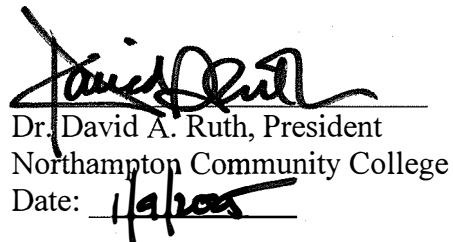 David A Ruth
Dr. David A. Ruth, President
Northampton Community College
Date: 1/9/2025